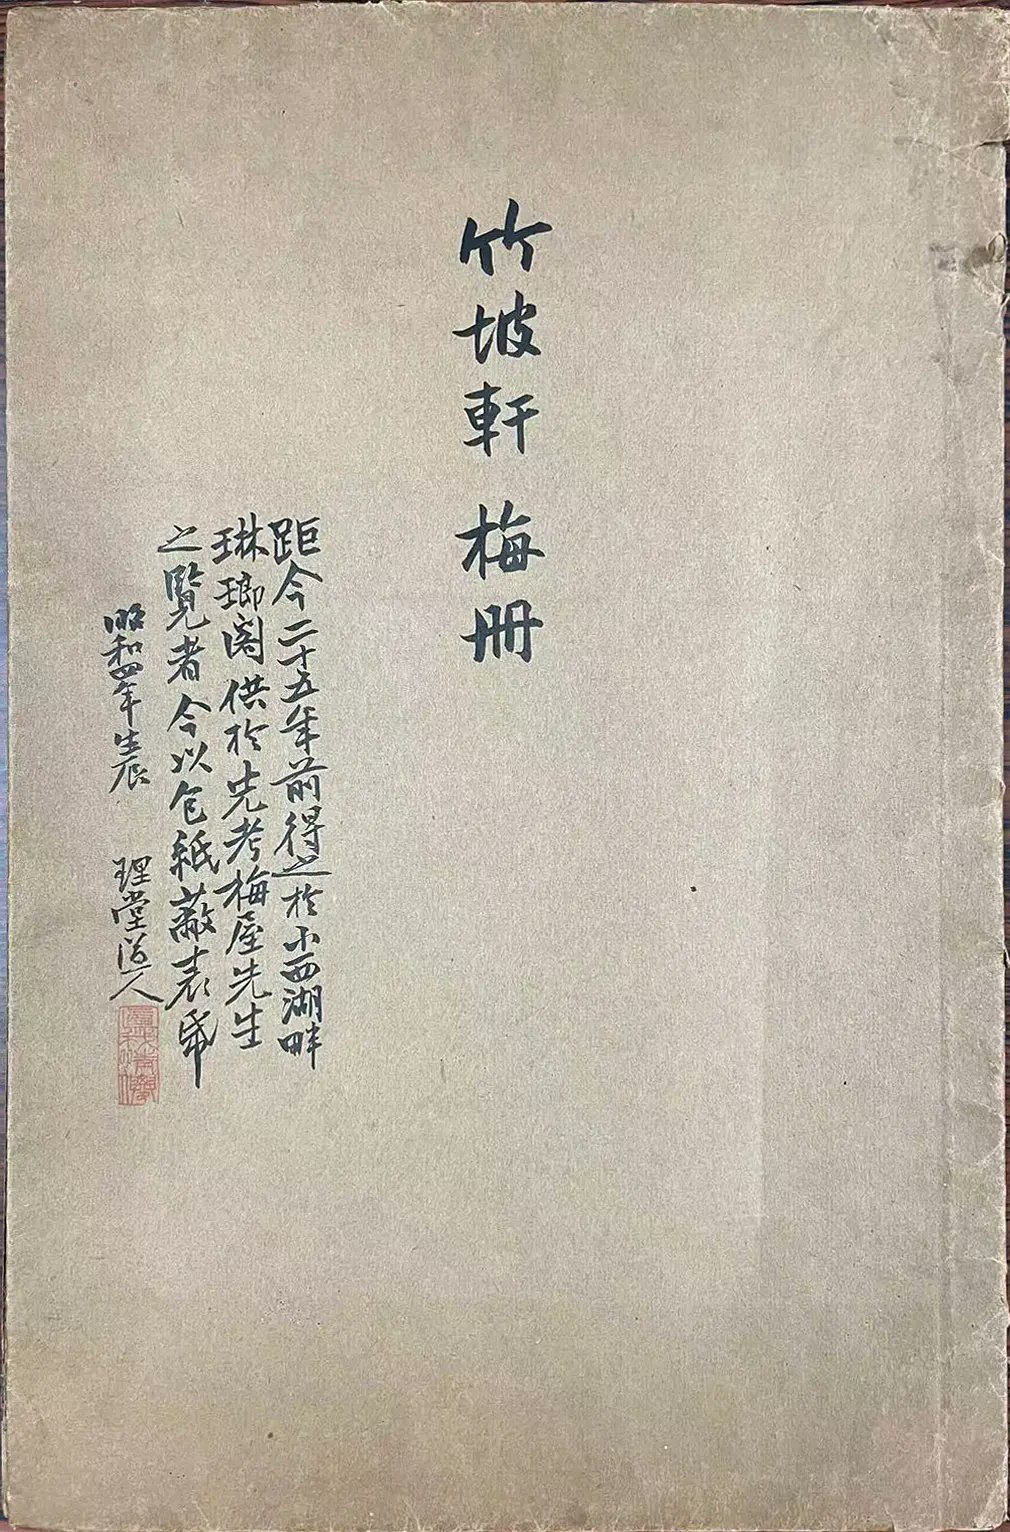 竹坡軒 梅冊
距今二十五年前得之於小西湖畔
琳瑯閣供於先考梅屋先生
之覧者今以包紙蔽表帋
昭和四年生辰 理堂道人